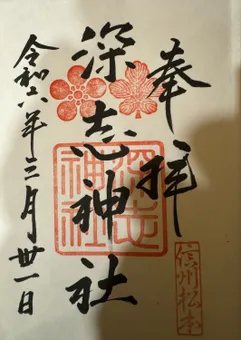 奉拝
深志神社
令和六年三月卅一日
深志神社
信州松本